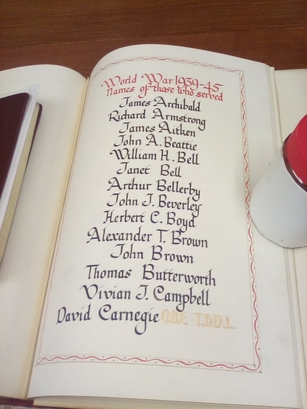 World War 1939-45
Names of those who served
James Archibald
Richard Armstrong
James Aitken
John A. Beattie
William H. Bell
Janet Bell
Arthur Bellerby
John J. Beverley
Herbert C. Boyd
Alexander T. Brown
John Brown
Thomas Butterworth
Vivian J. Campbell
David Carnegie